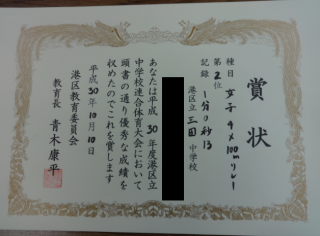 賞状
種目 女子4×100mリレー
第2位
記録 1分0秒13
港区立 三田 中学校
あなたは平成30年度港区立
中学校連合体育大会において
頭書の通り優秀な成績を
収めたのでこれを賞します
平成30年10月10日
港区教育委員会
教育長 青木康平